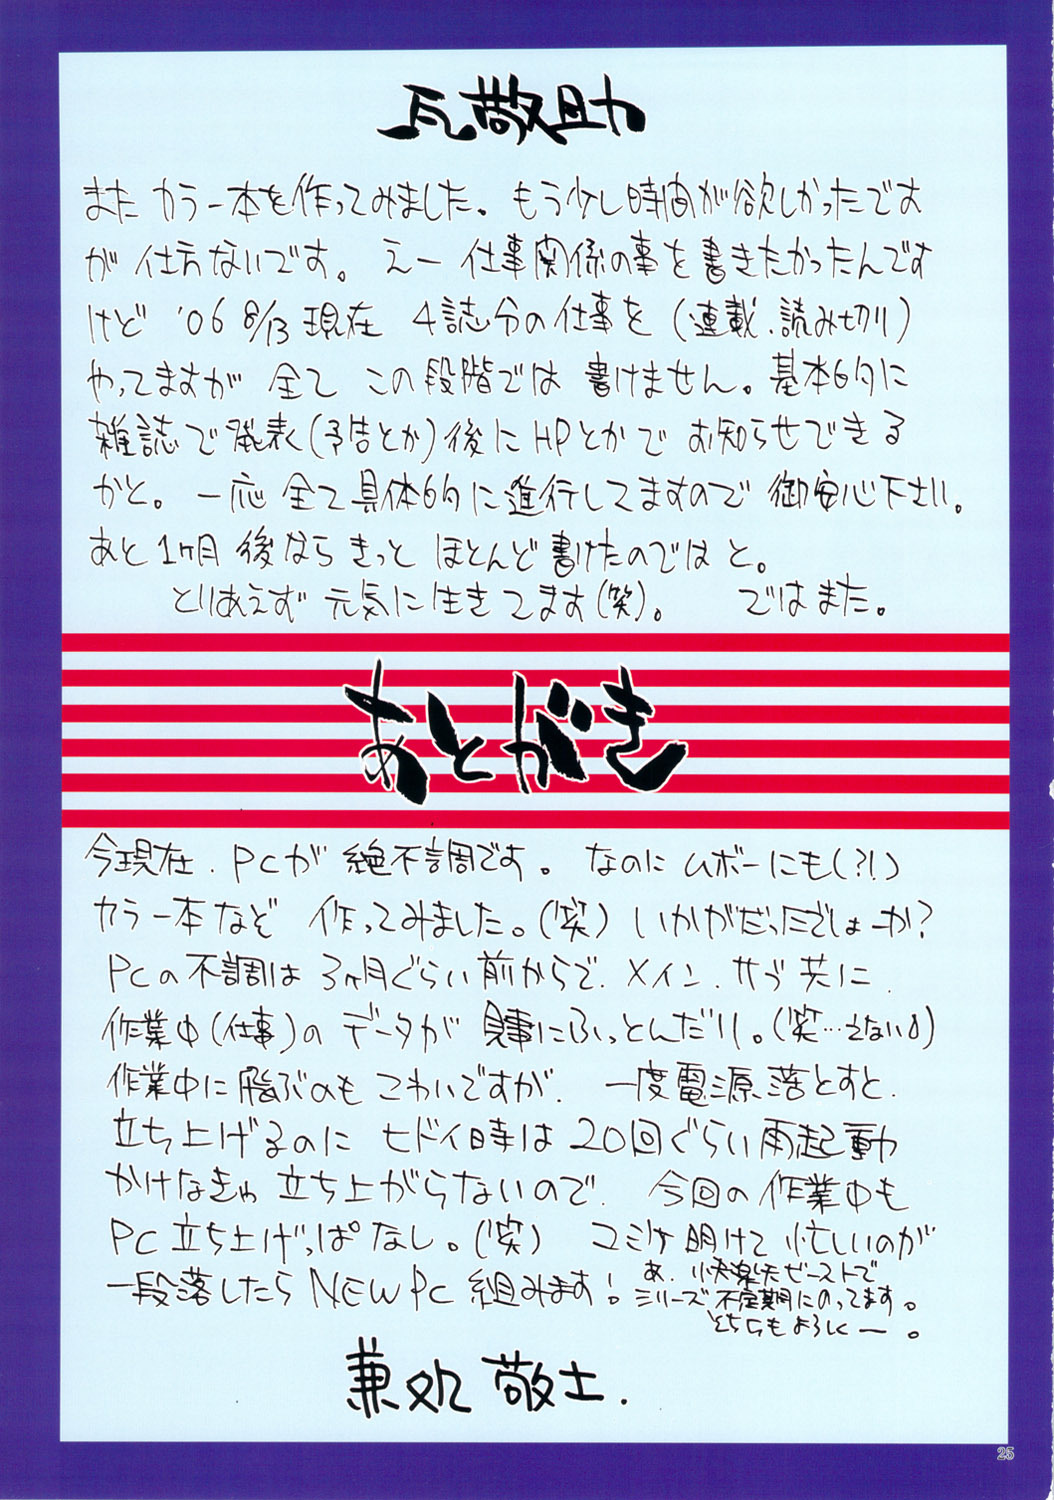 瓦敬助
また カラー本を作ってみました。もう少し時間が欲しかったです
が 仕方ないです。 えー 仕事関係の事を書きたかったんです
けど '06 8/13 現在 4誌分の仕事を（連載、読み切り）
やってますが 全て この段階では 書けません。基本的に
雑誌で発表（予告とか）後に HPとかで お知らせできる
かと。一応 全て具体的に進行してますので 御安心下さい。
あと 1ヶ月 後なら きっと ほとんど 書けたのでは と。
とりあえず 元気に生きてます（笑）。 ではまた。
あとがき
今現在、PCが 絶不調です。なのに ムボーにも（?!）
カラー本など 作ってみました。（笑）いかがだったでしょーか?
PCの不調は 3ヶ月ぐらい前からで、メイン、サブ共に、
作業中（仕事）の データが 見事にふっとんだり。（笑…えない）
作業中に飛ぶのも こわいですが、一度電源落とすと、
立ち上げるのに ヒドイ時は 20回ぐらい再起動
かけなきゃ 立ち上がらないので、今回の作業中も
PC 立ち上げっぱなし。（笑） コミケ明けて 忙しいのが
一段落したら NEW PC 組みます!
あ、快楽天ビーストで
シリーズ 不定期にのってます。
そちらもよろしくー。
兼処 敬士.
25